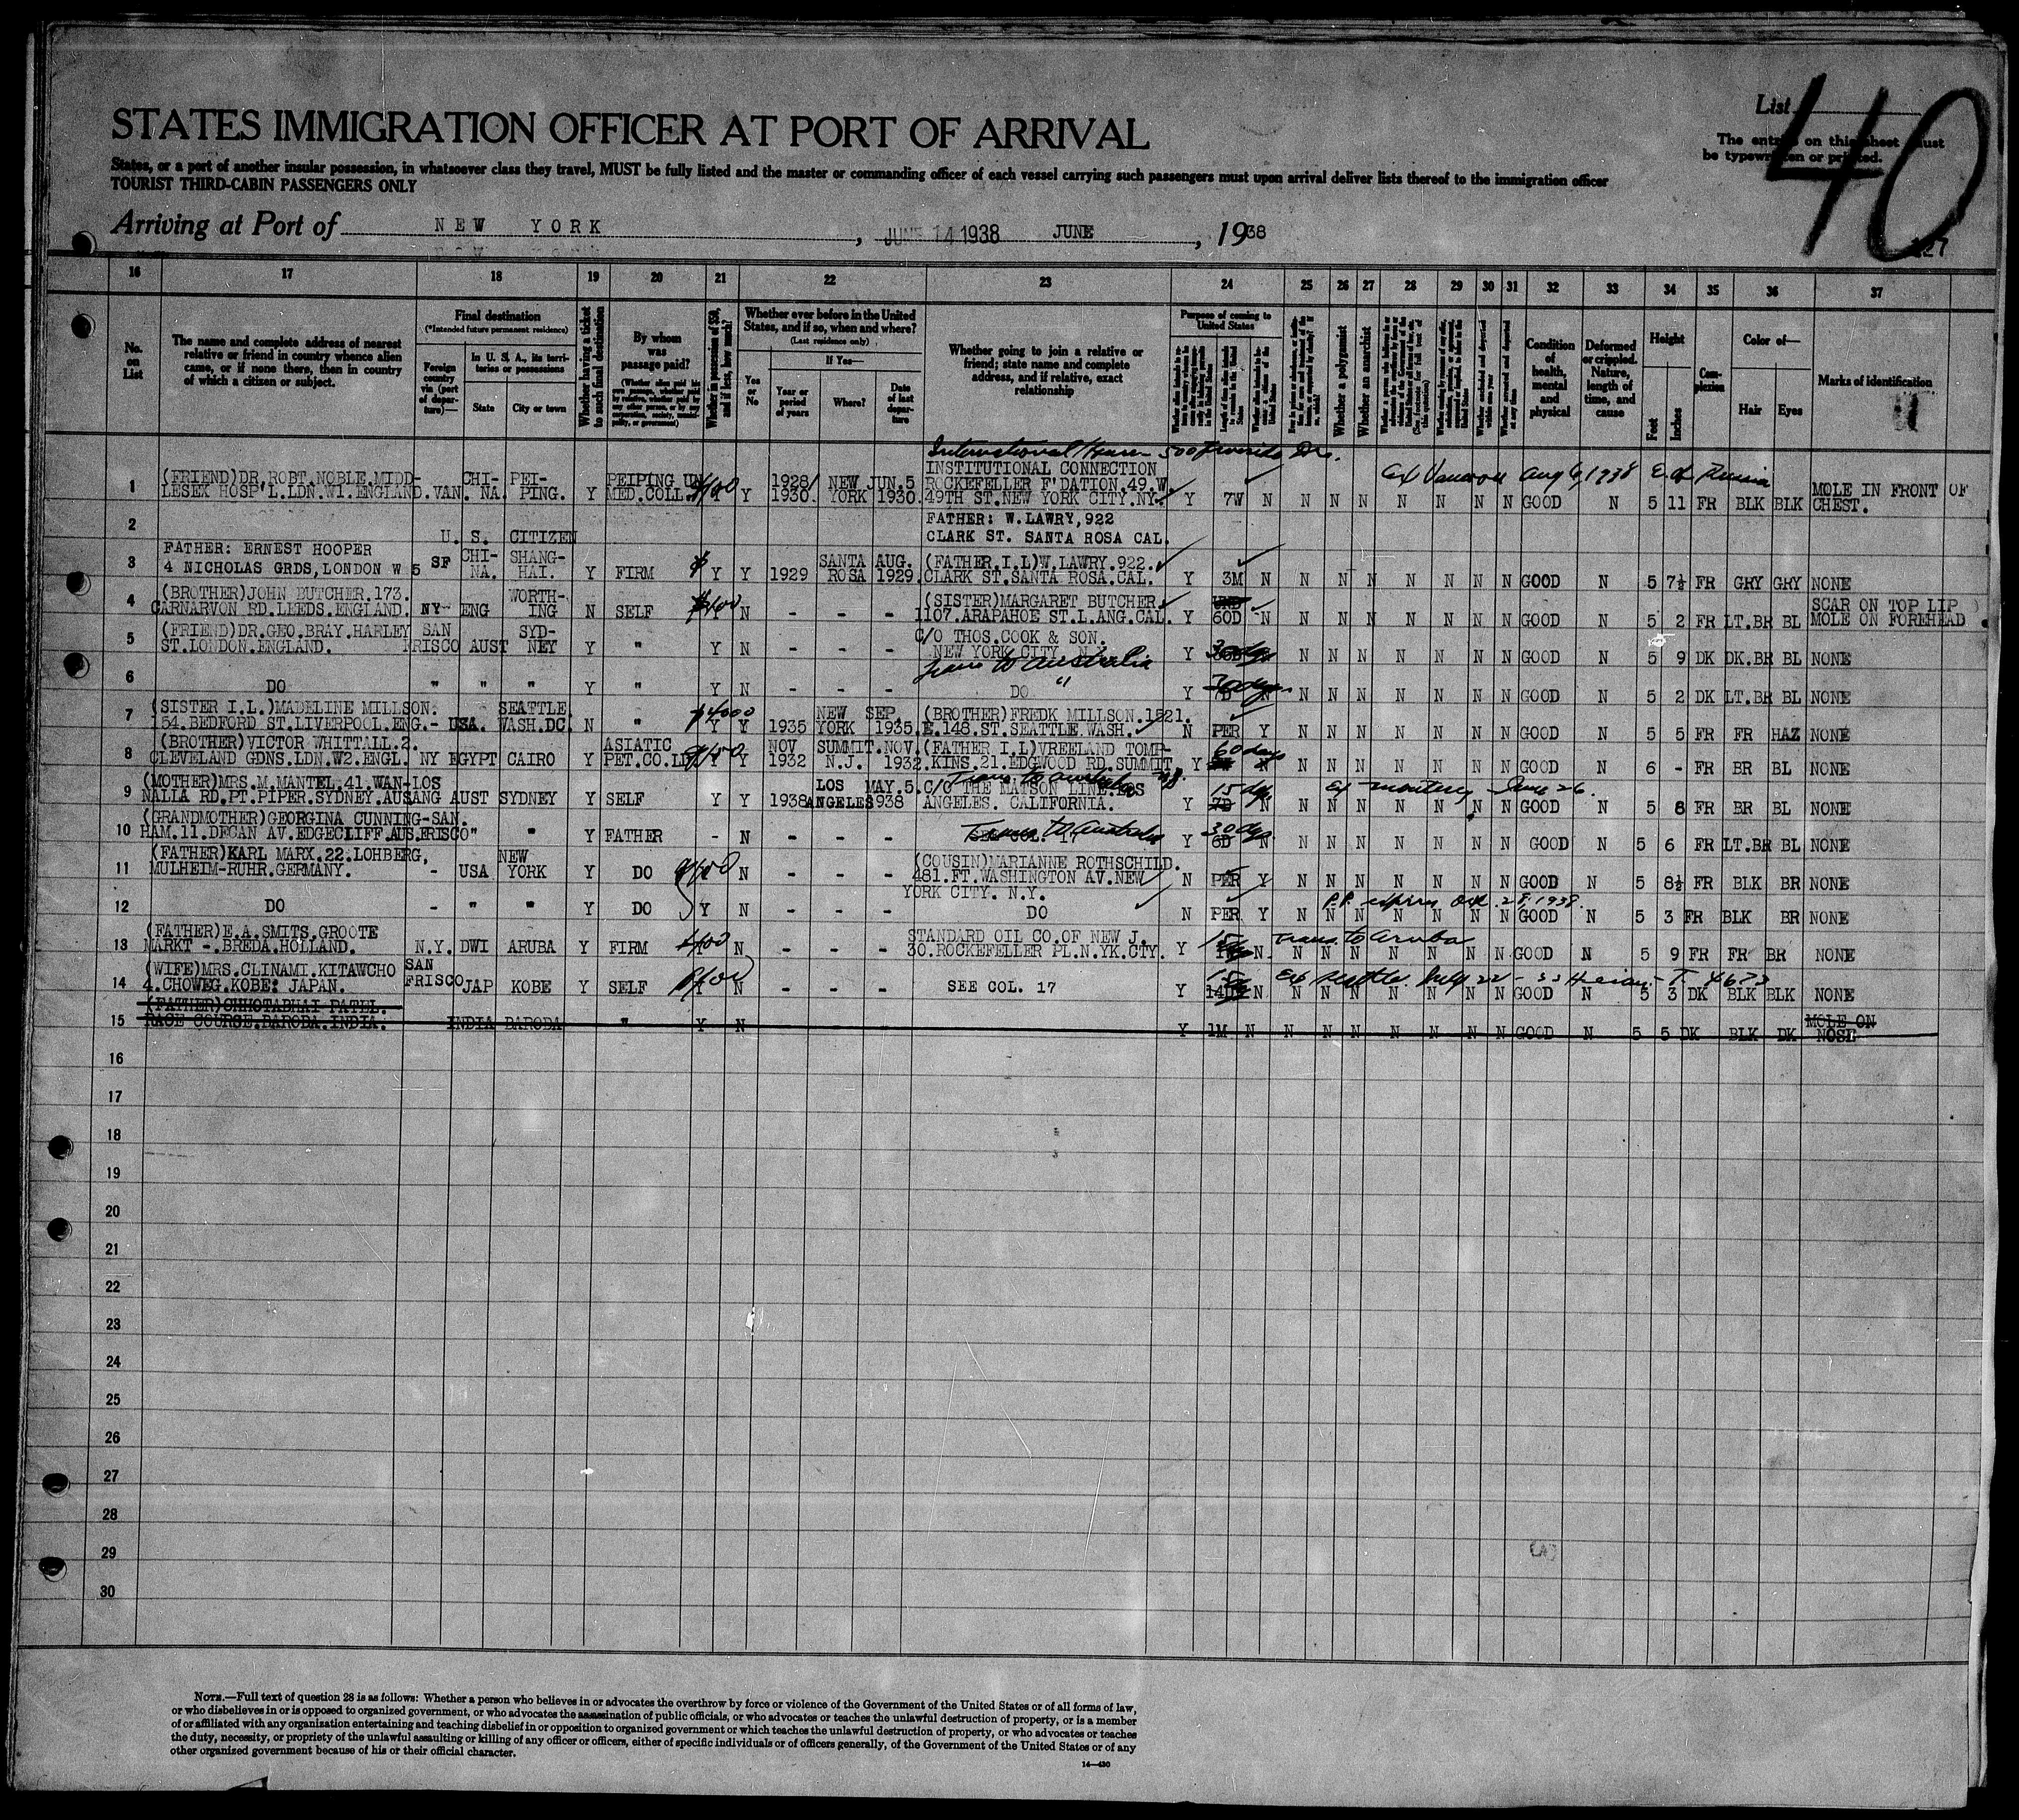 List
40
STATES IMMIGRATION OFFICER AT PORT OF ARRIVAL
The entries on this sheet must
be typewritten or printed.
States, or a port of another insular possession, in whatsoever class they travel, MUST be fully listed and the master or commanding officer of each vessel carrying such passengers must upon arrival deliver lists thereof to the immigration officer
TOURIST THIRD-CABIN PASSENGERS ONLY
Arriving at Port of NEW YORK, JUNE 14 1938 JUNE, 1938
127
16 17 18 19 20 21 22 23 24 25 26 27 28 29 30 31 32 33 34 35 36 37
No. on List
The name and complete address of nearest
relative or friend in country whence alien
came, or if none there, then in country
of which a citizen or subject.
Final destination
(*Intended future permanent residence)
Foreign country via (port of departure)—
In U. S. A., its territories or possessions
State
City or town
Whether having a ticket to such final destination
By whom was passage paid?
Whether in possession of $50, and if less, how much?
Whether ever before in the United
States, and if so, when and where?
(Last residence only)
Yes or No
If Yes—
Year or period of years
Where?
Date of last departure
Whether going to join a relative or
friend; state name and complete
address, and if relative, exact
relationship
Purpose of coming to
United States
Whether a polygamist
Whether an anarchist
Condition of health, mental and physical
Deformed or crippled. Nature, length of time, and cause
Height
Feet
Inches
Complexion
Color of—
Hair
Eyes
Marks of identification
International House 500 Riverside Dr.
1 (FRIEND)DR.ROBT.NOBLE.MIDD- CHI- PEI- PEIPING UN 1928/ NEW JUN.5 INSTITUTIONAL CONNECTION
LESEX HOSP'L.LDN.W1.ENGLAND. VAN. NA. PING. Y MED.COLL. Y Y 1930. YORK 1930. ROCKEFELLER F'DATION.49.W
49TH ST.NEW YORK CITY.NY. Y 7W N N N N N N N N GOOD N 5 11 FR BLK BLK MOLE IN FRONT OF
CHEST.
2 U. S. CITIZEN FATHER: W.LAWRY,922
CLARK ST. SANTA ROSA CAL.
3 FATHER: ERNEST HOOPER SF CHI- SHANG- SANTA AUG. (FATHER.I.L)W.LAWRY.922.
4 NICHOLAS GRDS,LONDON W 5 NA. HAI. Y FIRM Y Y 1929 ROSA 1929. CLARK ST.SANTA ROSA.CAL. Y 3M N N N N N N N N GOOD N 5 7½ FR GRY GRY NONE
4 (BROTHER)JOHN BUTCHER.173. WORTH- (SISTER)MARGARET BUTCHER SCAR ON TOP LIP
CARNARVON RD.LEEDS.ENGLAND. NY ENG ING N SELF Y N - - - 1107.ARAPAHOE ST.L.ANG.CAL. Y 60D N N N N N N N N GOOD N 5 2 FR LT.BR BL MOLE ON FOREHEAD
5 (FRIEND)DR.GEO.BRAY.HARLEY SAN SYD- C/O THOS.COOK & SON.
ST.LONDON.ENGLAND. FRISCO AUST NEY Y " Y N - - - NEW YORK CITY. Y 30 dys N N N N N N N GOOD N 5 9 DK DK.BR BL NONE
Trans to Australia
6 DO " " " Y " Y N - - - DO " Y 30 dys N N N N N N N N GOOD N 5 2 DK LT.BR BL NONE
7 (SISTER I.L.)MADELINE MILLSON. SEATTLE $4000 NEW SEP. (BROTHER)FREDK MILLSON.1521.
154.BEDFORD ST.LIVERPOOL.ENG. - USA. WASH.DC. N " Y Y 1935 YORK 1935. E.148.ST.SEATTLE.WASH. N PER Y N N N N N N N GOOD N 5 5 FR FR HAZ NONE
8 (BROTHER)VICTOR WHITTALL.2. ASIATIC NOV SUMMIT.NOV. (FATHER.I.L)VREELAND TOMP-
CLEVELAND GDNS.LDN.W2.ENGL. NY EGYPT CAIRO Y PET.CO.LD Y Y 1932 N.J. 1932. KINS.21.EDGWOOD RD.SUMMIT Y 60 days N N N N N N N N GOOD N 6 - FR BR BL NONE
Trans to Australia
9 (MOTHER)MRS.M.MANTEL.41.WAN- LOS LOS MAY.5. C/O THE MATSON LINE.LOS 15 dys Ex Monterey June 26.
NALLA RD.PT.PIPER.SYDNEY.AUS ANG AUST SYDNEY Y SELF Y Y 1938 ANGELES 1938 ANGELES. CALIFORNIA. Y 7D N N N N N N N N GOOD N 5 8 FR BR BL NONE
10 (GRANDMOTHER)GEORGINA CUNNING- SAN.
HAM.11.DECAN AV.EDGECLIFF.AUS. FRISCO " " Y FATHER - N - - - Trans to Australia SEE COL. 17 Y 30 dys 6D N N N N N N N N GOOD N 5 6 FR LT.BR BL NONE
11 (FATHER)KARL MARX.22.LOHBERG, NEW (COUSIN)MARIANNE ROTHSCHILD.
MULHEIM-RUHR.GERMANY. - USA YORK Y DO Y N - - - 481.FT.WASHINGTON AV.NEW N PER Y N N N N N N N GOOD N 5 8½ FR BLK BR NONE
YORK CITY. N.Y.
12 DO - " " Y DO Y N - - - DO N PER Y N N N N N N N GOOD N 5 3 FR BLK BR NONE
13 (FATHER)E.A.SMITS.GROOTE STANDARD OIL CO.OF NEW J. 15 Trans to Aruba
MARKT -.BREDA.HOLLAND. N.Y. DWI ARUBA Y FIRM Y N - - - 30.ROCKEFELLER PL.N.YK.CTY. Y N N N N N N N N GOOD N 5 9 FR FR BR NONE
14 (WIFE)MRS.CLINAMI.KITAWCHO SAN
4.CHOWEG.KOBE: JAPAN. FRISCO JAP KOBE Y SELF Y N - - - SEE COL. 17 Y 14D N N N N N N N N GOOD N 5 3 DK BLK BLK NONE
15 (FATHER)CHHOTABHAI PATEL.
RACE COURSE.BARODA.INDIA. INDIA BARODA " Y N Y 1M N N N N N N N N GOOD N 5 5 DK BLK DK MOLE ON
NOSE
16
17
18
19
20
21
22
23
24
25
26
27
28
29
30
NOTE.—Full text of question 28 is as follows: Whether a person who believes in or advocates the overthrow by force or violence of the Government of the United States or of all forms of law,
or who disbelieves in or is opposed to organized government, or who advocates the assassination of public officials, or who advocates or teaches the unlawful destruction of property, or is a member
of or affiliated with any organization entertaining and teaching disbelief in or opposition to organized government or which teaches the unlawful destruction of property, or who advocates or teaches
the duty, necessity, or propriety of the unlawful assaulting or killing of any officer or officers, either of specific individuals or of officers generally, of the Government of the United States or of any
other organized government because of his or their official character.
14—430